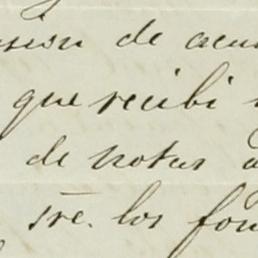 sion de acu
que recibi
de notas a
sre. los fon